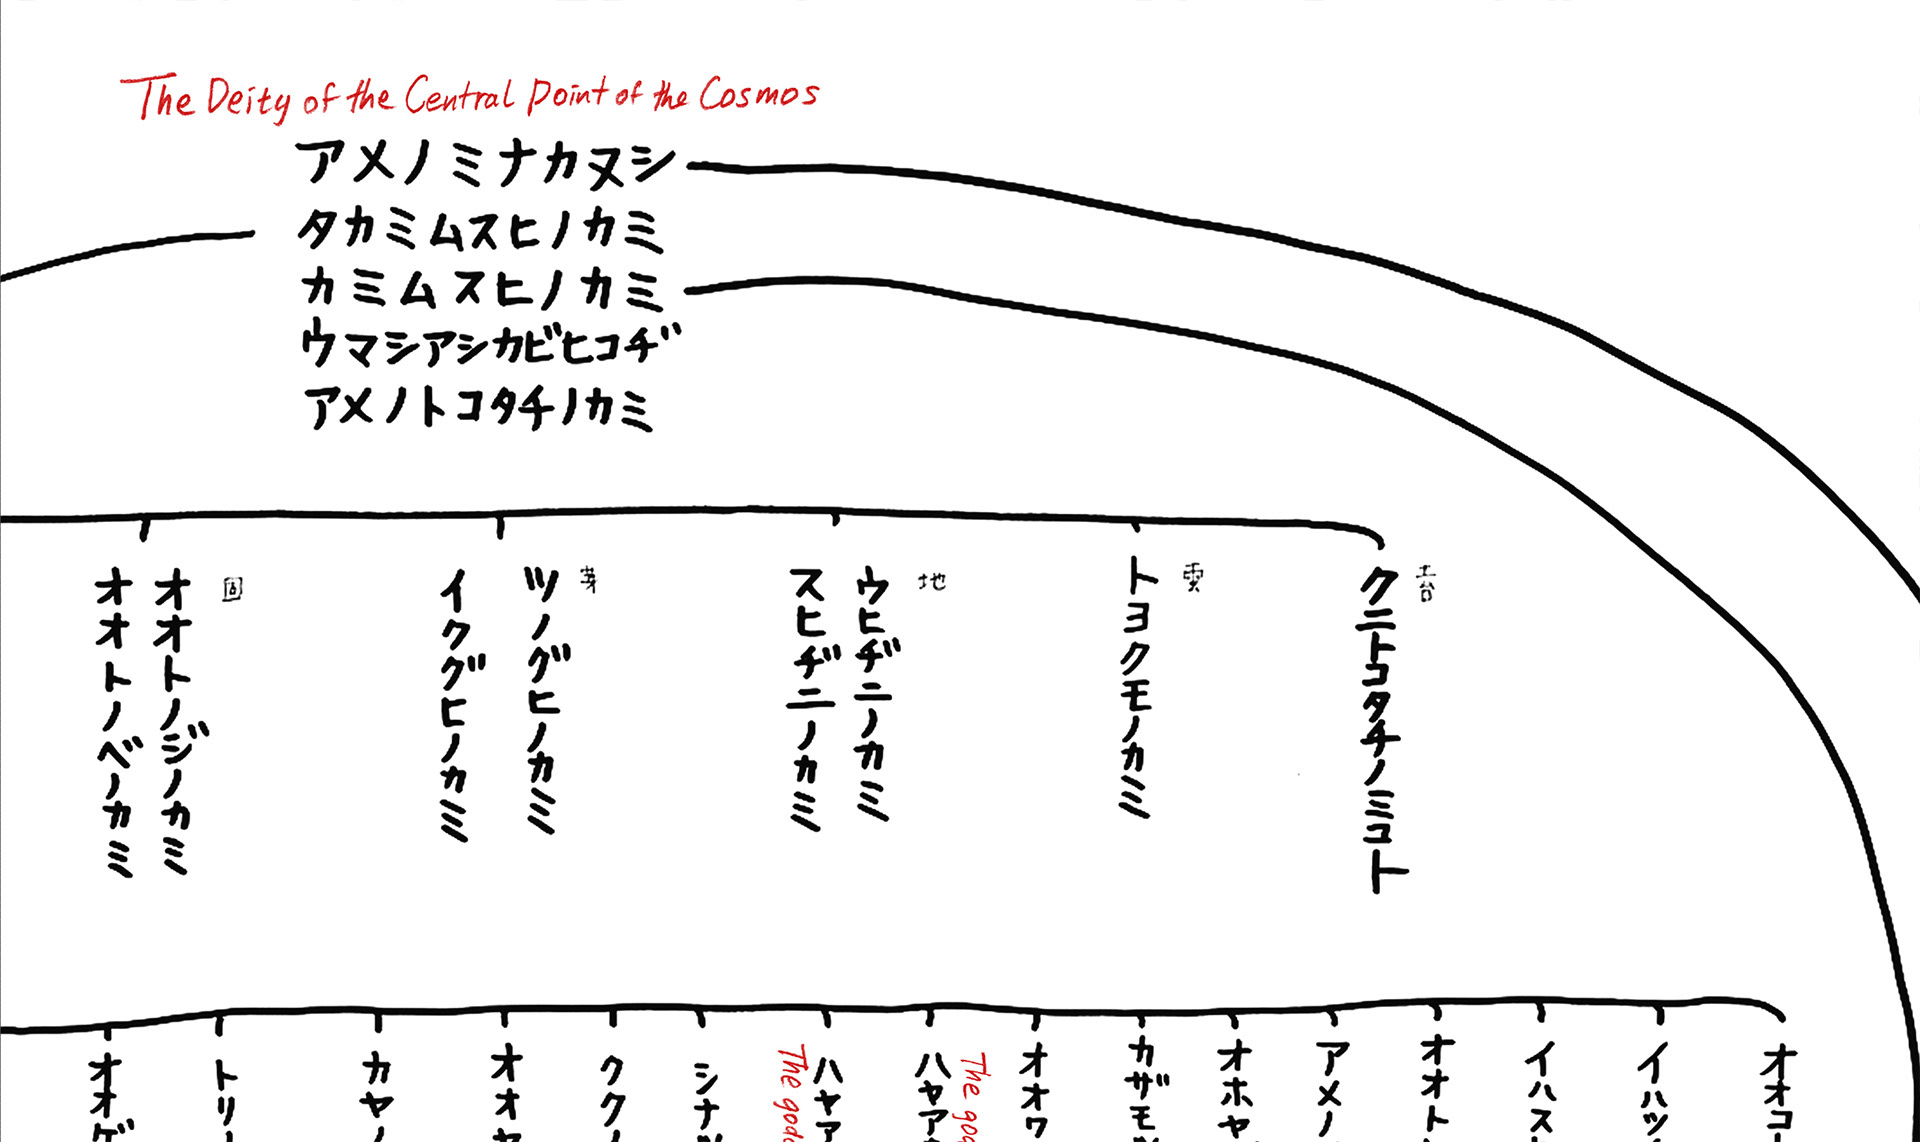 The Deity of the Central Point of the Cosmos
アメノミナカヌシ
タカミムスヒノカミ
カミムスヒノカミ
ウマシアシカビヒコヂ
アメノトコタチノカミ
苔
クニトコタチノミコト
雲
トヨクモノカミ
地
ウヒヂニノカミ
スヒヂニノカミ
芽
ツノグヒノカミ
イクグヒノカミ
固
オオトノジノカミ
オオトノベノカミ
オオコ
イハツ
イハス
オオト
アメノ
オホヤ
カザモ
オオワ
The
ハヤア
ハヤア
The
シナ
ククノ
オオ
カヤノ
トリ
オオゲ